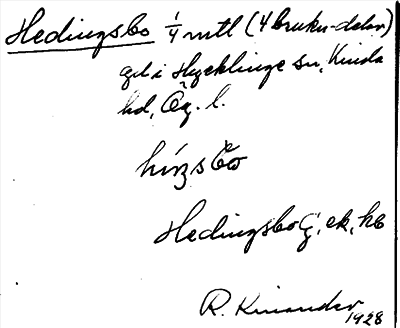 Hedingsbo 1/4 mtl (4 bruku-delar)
gd i Hycklinge sn, Kinda
hd, Ög. l.
híŋsbo
Hedingsbo G, ek, hb
R. Kinander
1928